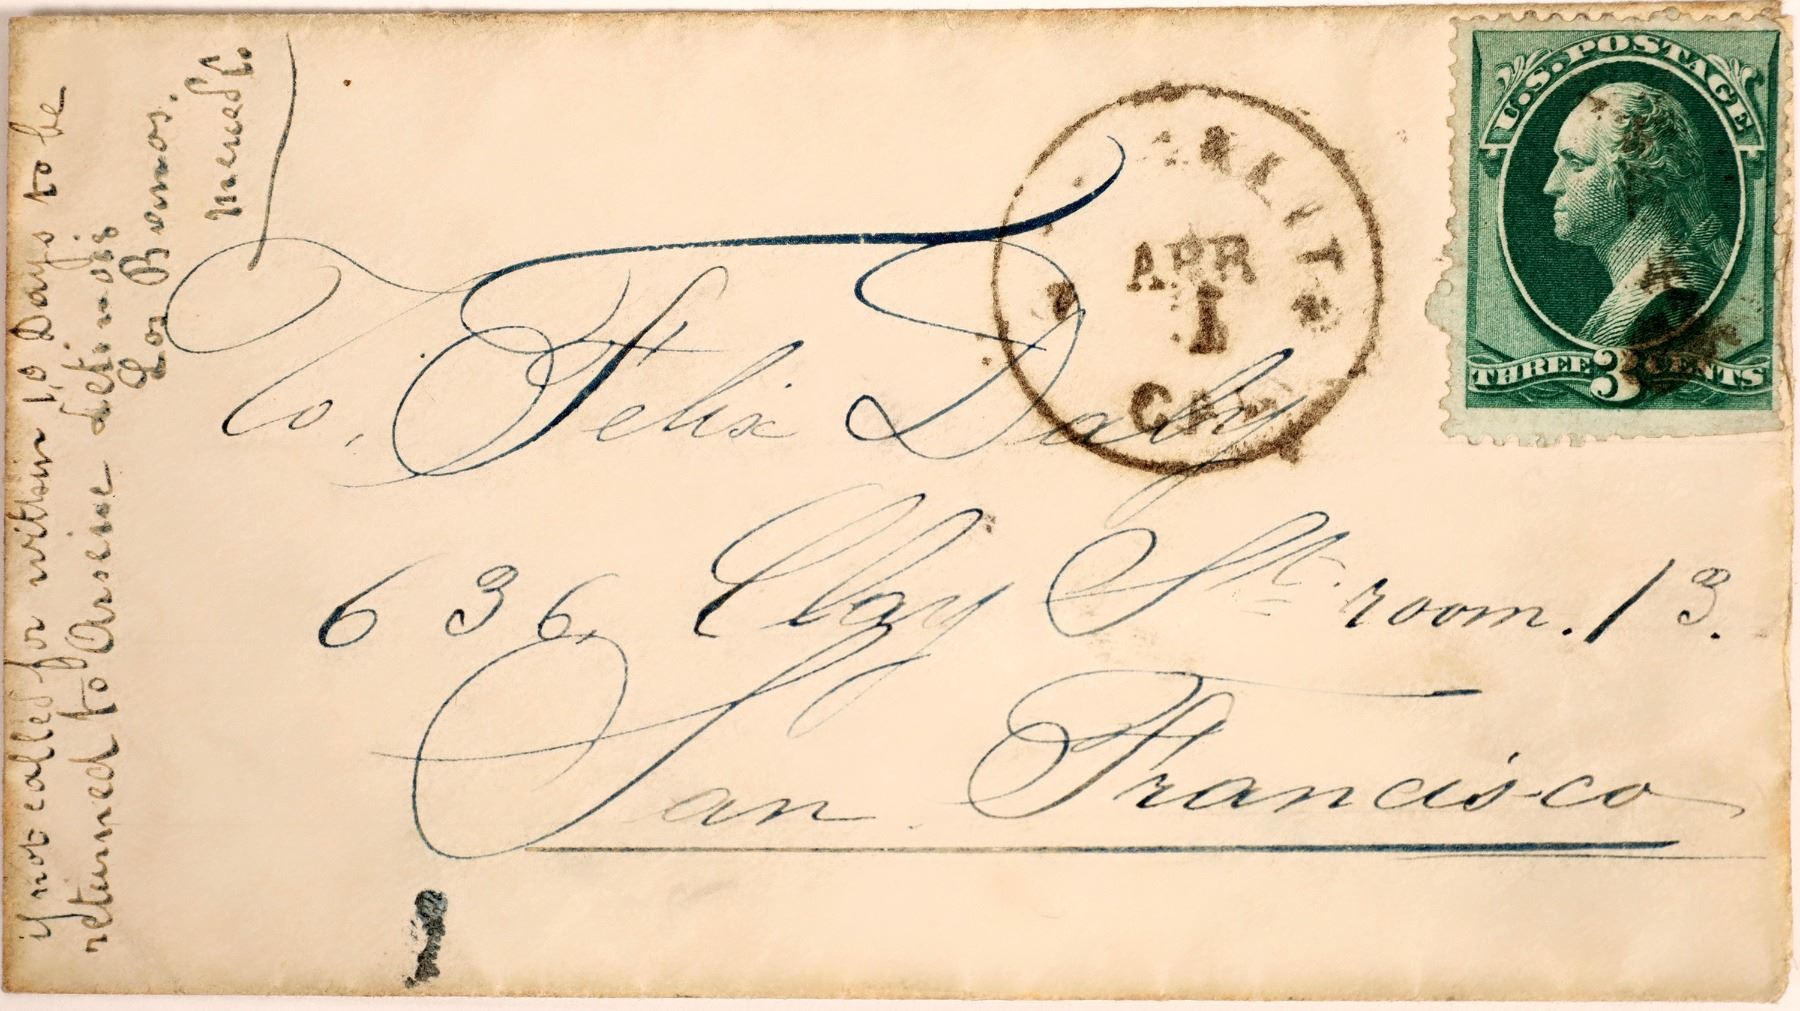 if not called for within 10 Days to be
returned to Arsine
Los Banos.
merced Co
To, Felix Daly
636, Clay St. room. 13.
San Francisco
APR
1
CAL
U.S. POSTAGE
THREE 3 CENTS